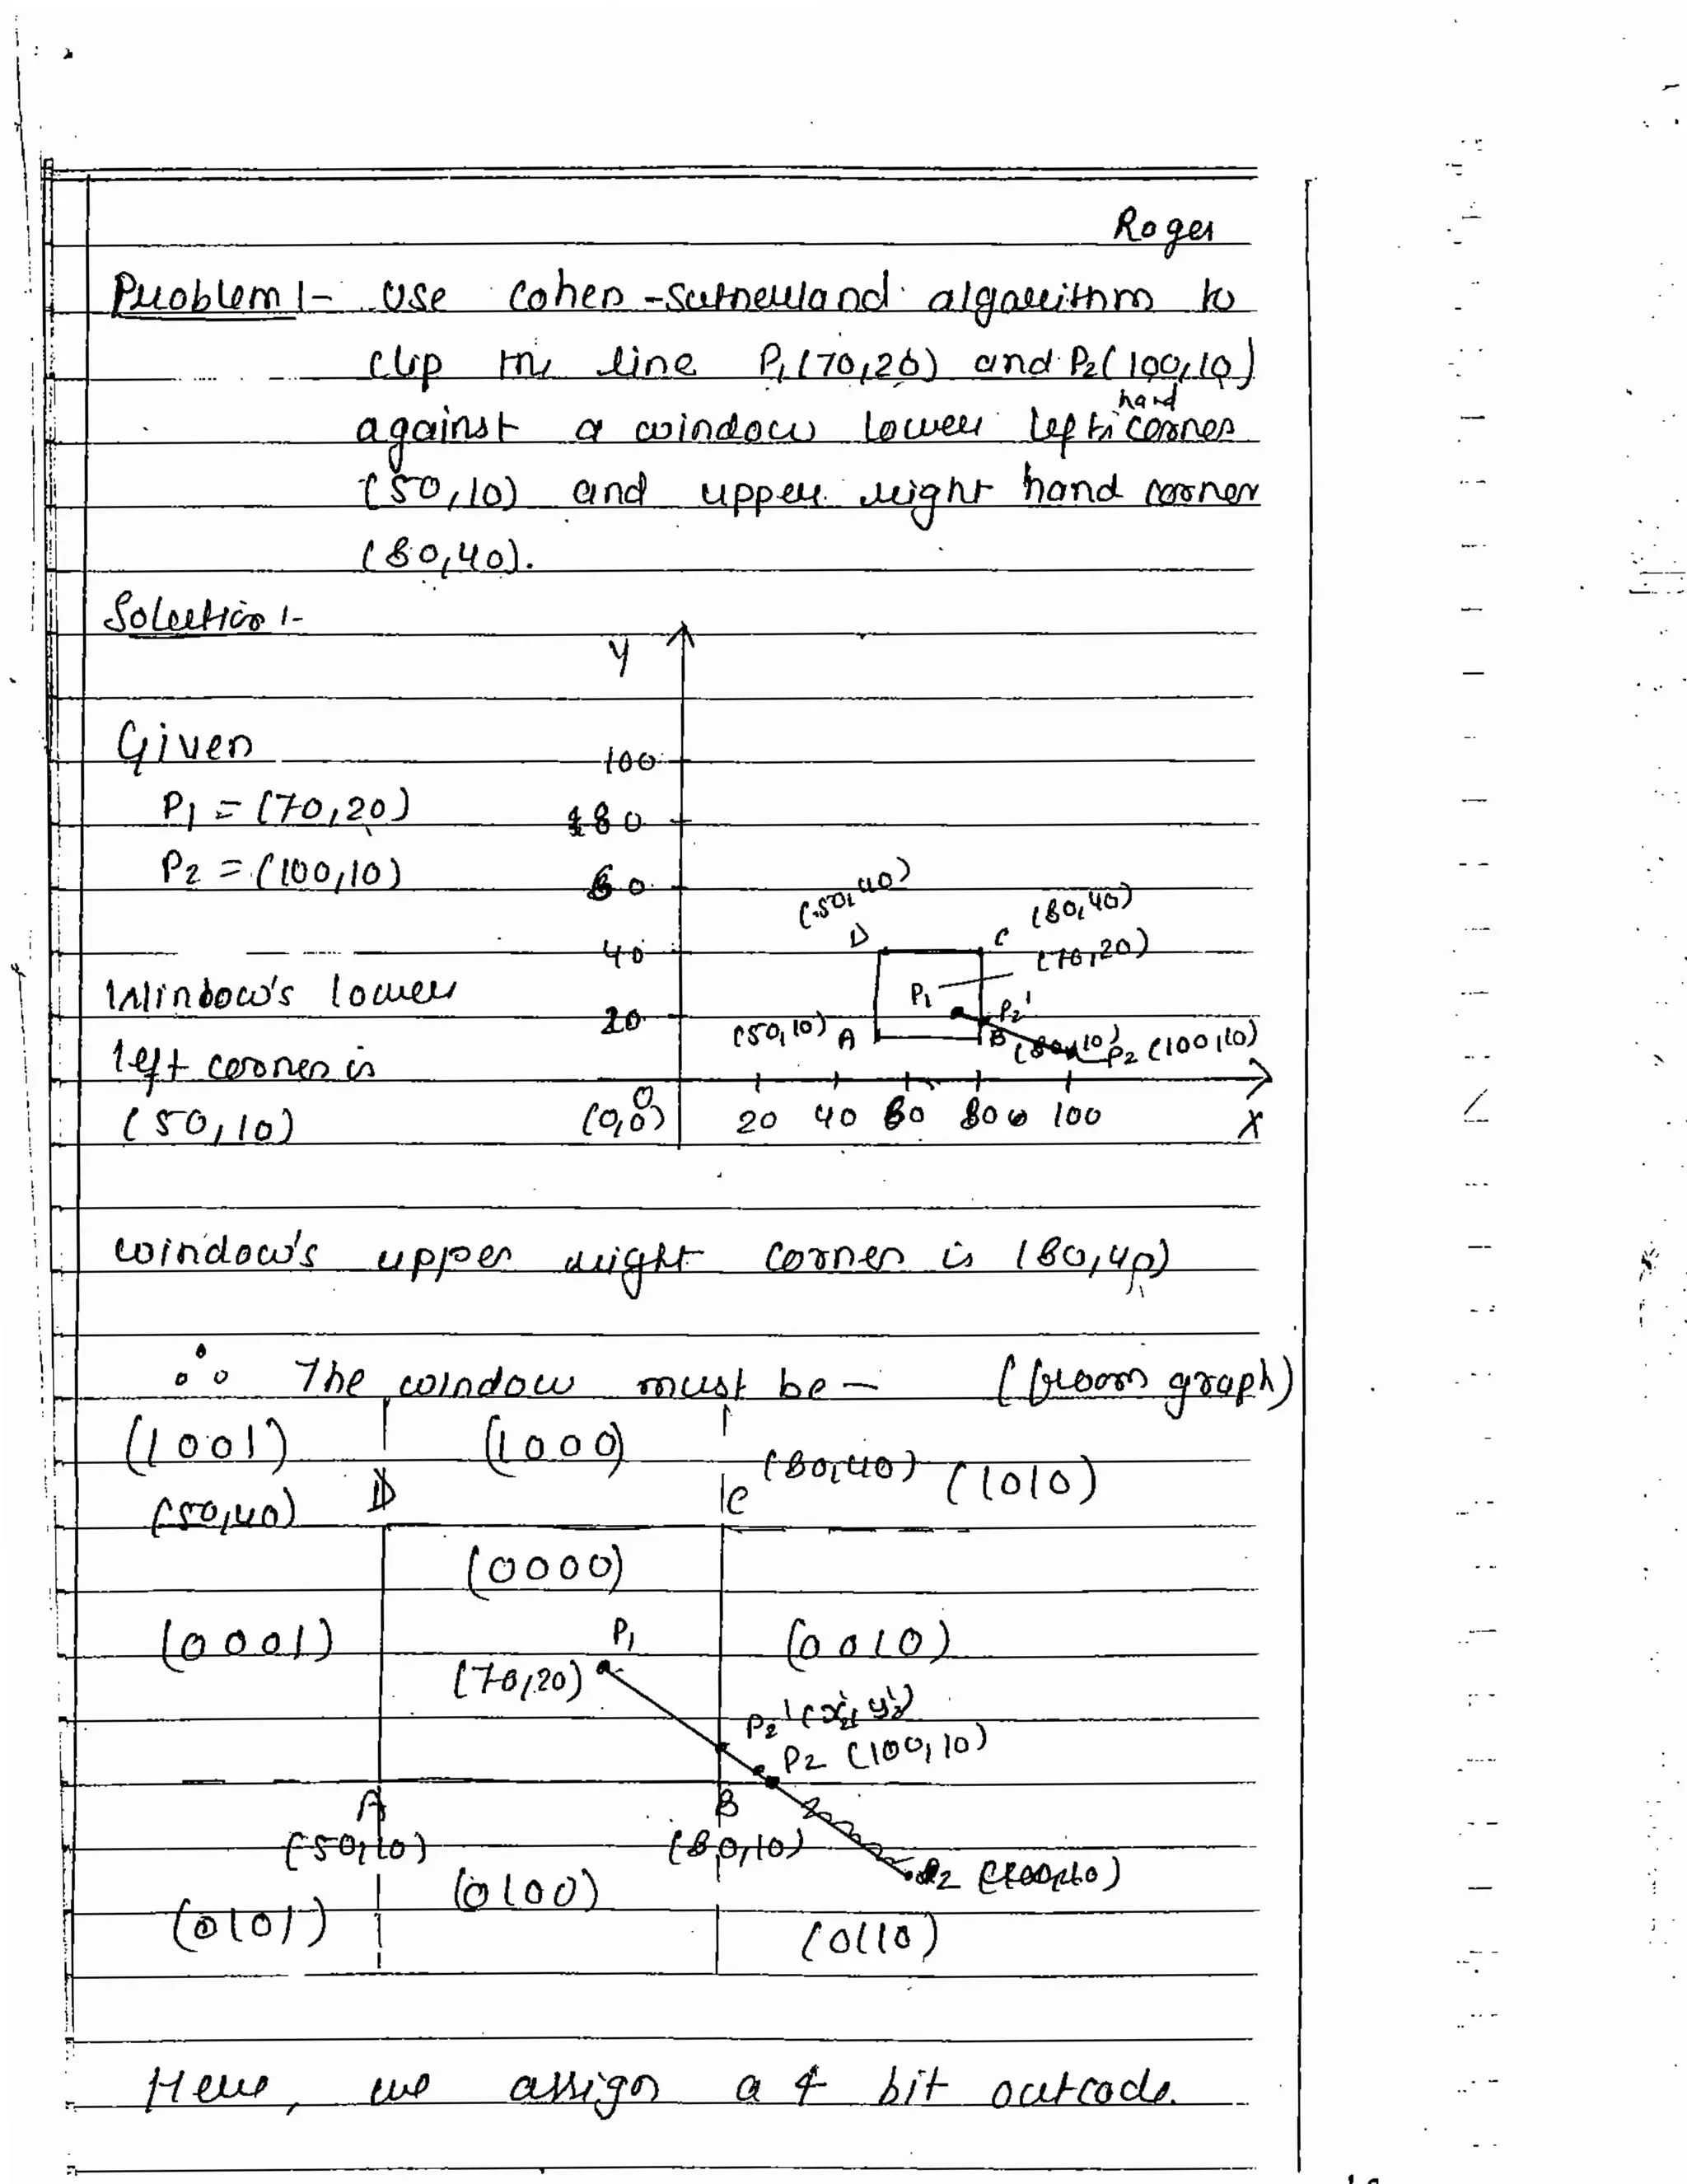 Roger
Problem 1- Use Cohen-Sutherland algorithm to
clip the line P1(70,20) and P2(100,10)
hand
against a window lower left corner
(50,10) and upper right hand corner
(80,40).
Solution 1-
Y
Given
100
P1 = (70,20)
80
P2 = (100,10)
60
(50,40)
(80,40)
D
C
40
(70,20)
Window's lower
P1
P2'
20
(50,10) A
B
(80,10)
P2 (100,10)
left corner is
(50,10)
(0,0)
0
20 40 60 80 100
X
window's upper right corner is (80,40)
∴ The window must be — (from graph)
(1001)
(1000)
(80,40)
(1010)
(50,40)
D
C
(0000)
(0001)
P1
(0010)
(70,20)
P2'(x2',y2')
P2 (100,10)
A
B
(50,10)
(80,10)
P2
(0100)
(0101)
(0110)
Here, we assign a 4 bit outcode.